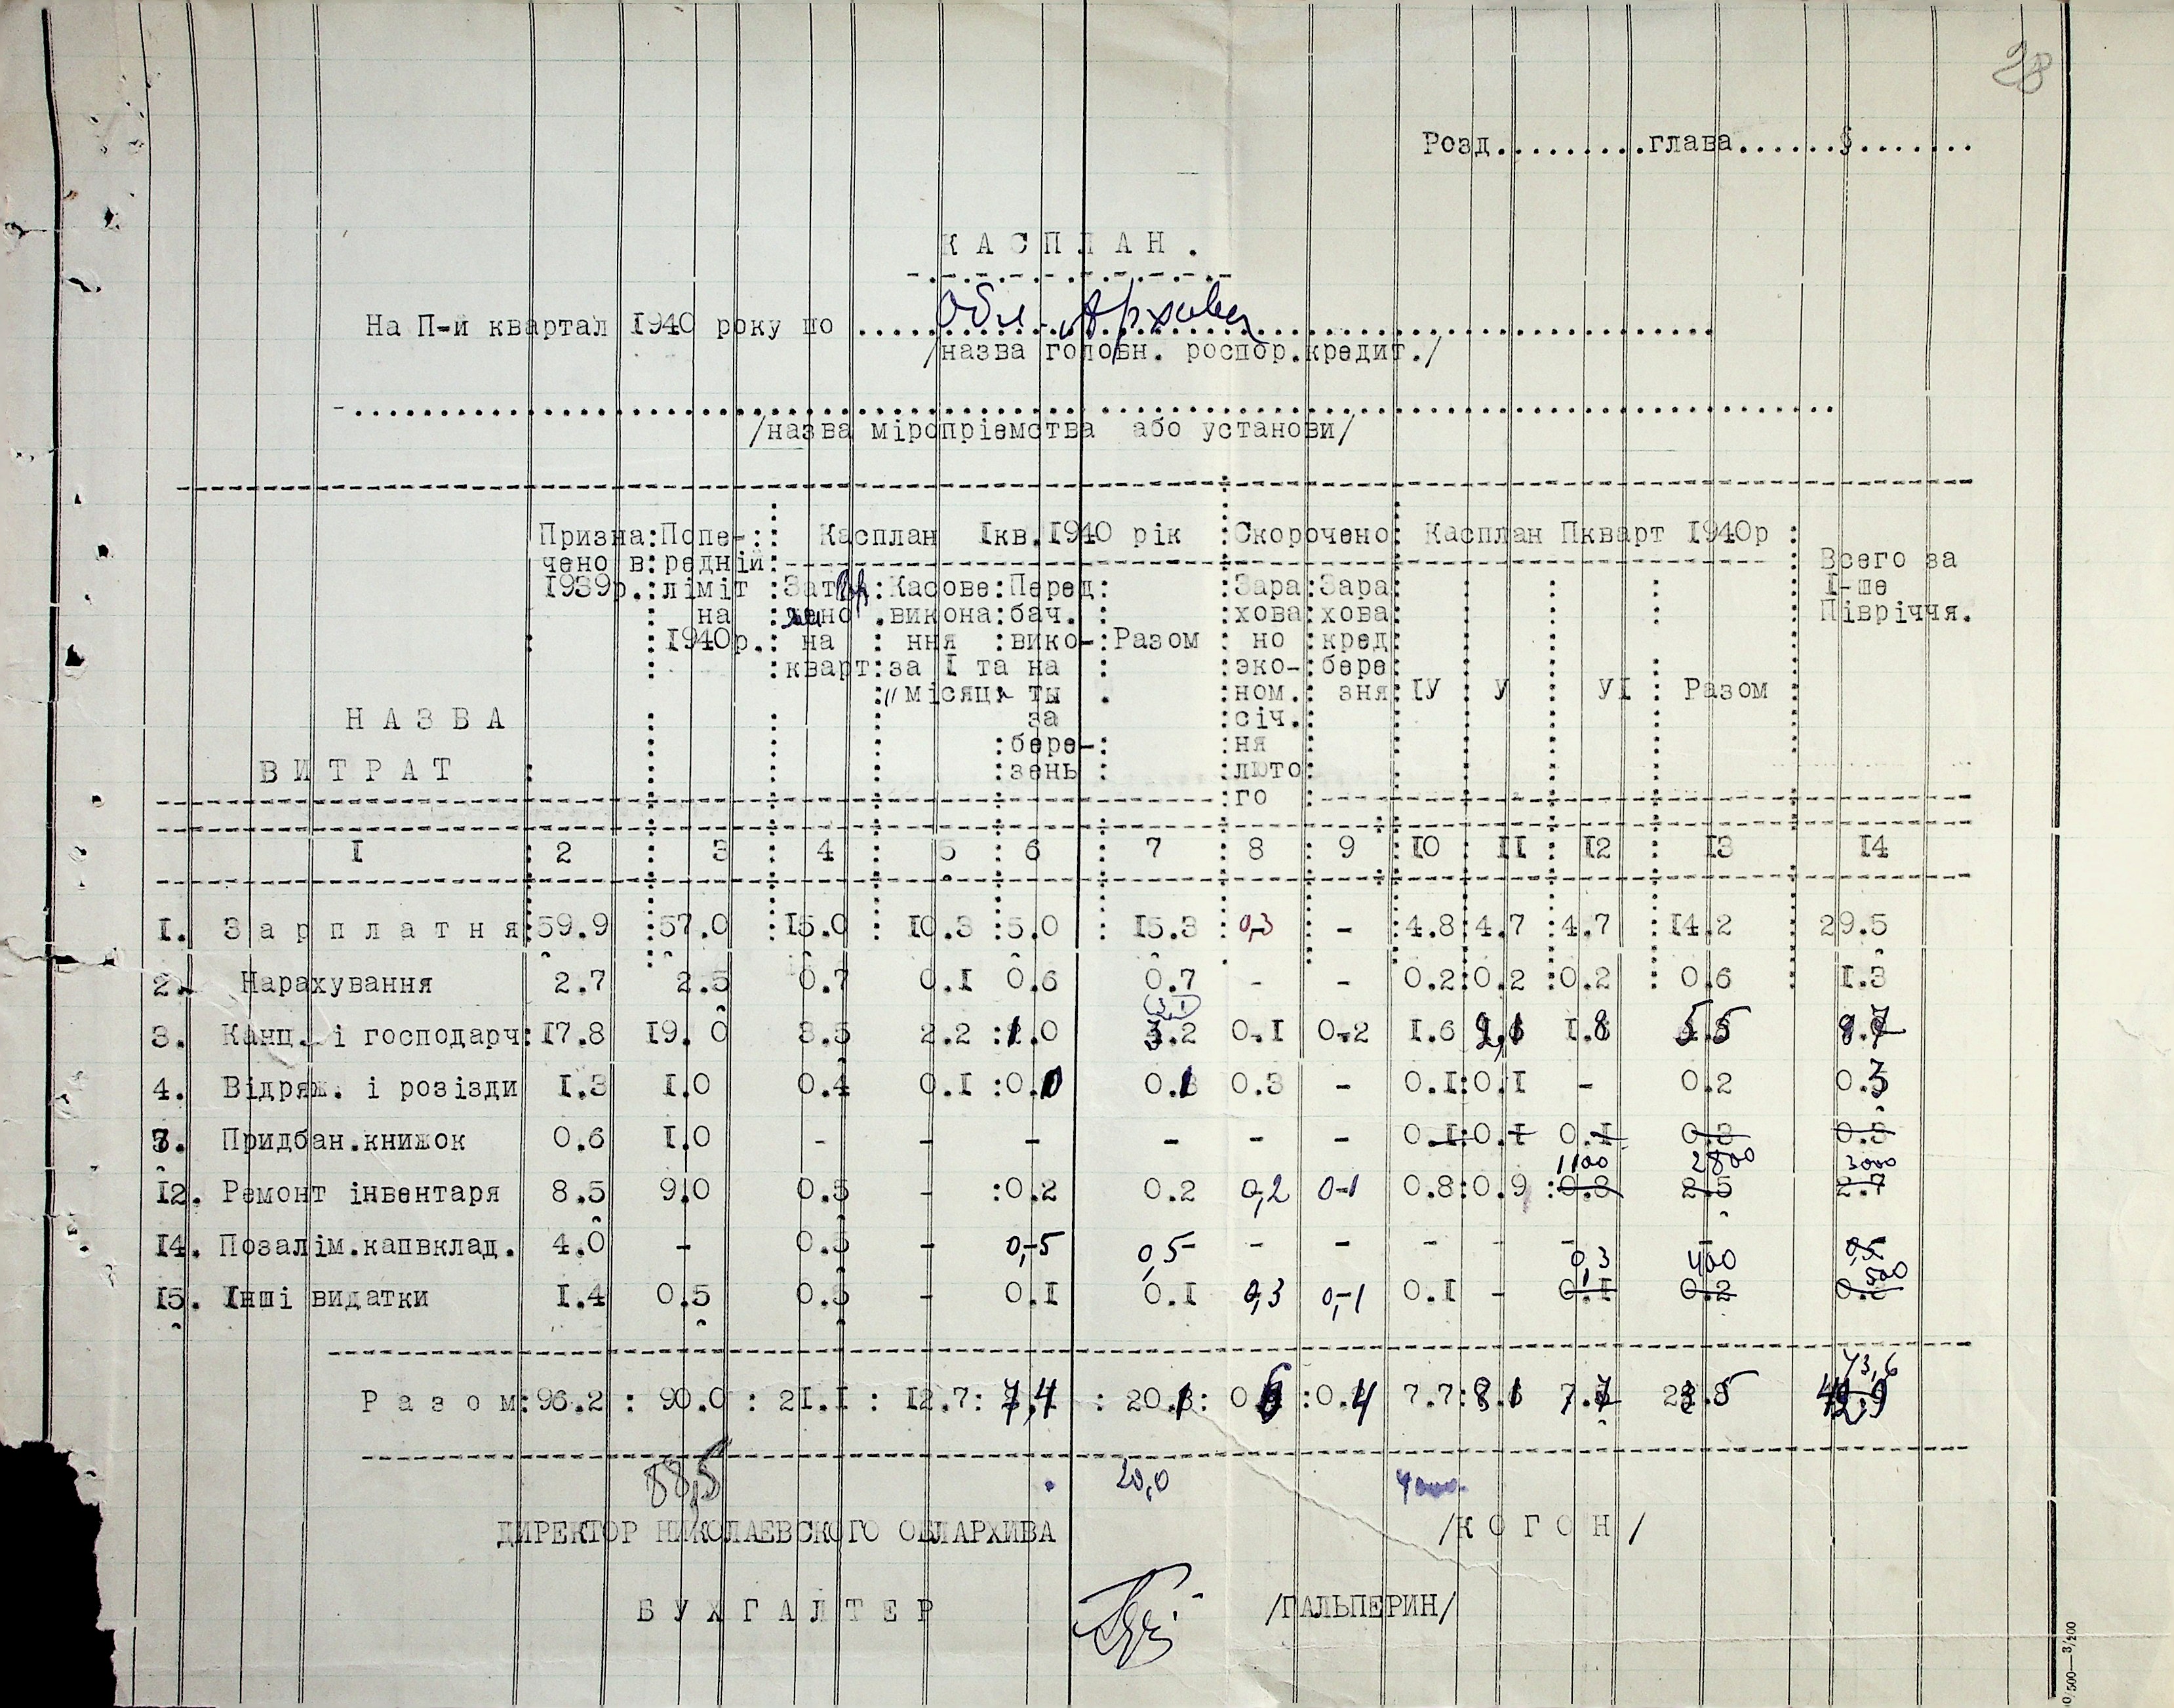 28
Розд.........глава......§.......
КАСПЛАН.
На П-й квартал 1940 року по ....Обл. Архива....
/назва головн. роспор.кредит./
/назва міропріємства або установи/
НАЗВА ВИТРАТ
Призна чено в 1939р.
Попе- редній ліміт на 1940р.
Касплан Iкв.1940 рік
на кварт
Касове викона ння за I та II місяц
Перед бач. вико- на ты за бере- зень
Разом
Скорочено
Зара хова но эко- ном. січ. ня люто го
Зара хова кред бере зня
Касплан Пкварт 1940р
IУ У УI Разом
Всего за I-ше Півріччя.
I 2 3 4 5 6 7 8 9 IO II I2 I3 I4
I. Зарплатня 59.9 57.0 I5.0 I0.3 5.0 I5.3 0,3 - 4.8 4.7 4.7 I4.2 29.5
2. Нарахування 2.7 2.5 0.7 0.I 0.6 0.7 - - 0.2 0.2 0.2 0.6 I.3
3. Канц. і господарч I7.8 I9.0 3.5 2.2 1.0 3.2 0.I 0.2 I.6 2,1 I.8 5.5
4. Відряж. і розізди I.3 I.0 0.4 0.I 0.0 0.1 0.3 - 0.I 0.I - 0.2 0.3
7. Придбан.книжок 0.6 I.0 - - - - - - 0.I 0.I 0.I 0.3 0.3
1100 2800 3000
I2. Ремонт інвентаря 8.5 9.0 0.5 - 0.2 0.2 0,2 0-1 0.8 0.9 0.8 2.5 2.7
I4. Позалім.капвклад. 4.0 - 0.5 - 0,5 0,5 - - - - - - 0,5
0,3 400 500
I5. Інші видатки I.4 0.5 0.5 - 0.I 0.I 0,3 0,1 0.I - 0.I 0.2
Разом 96.2 90.0 2I.I I2.7 7,4 20.1 0.6 0.4 7.7 8.1 7.7 23.5 42.9
88,5 20,0
ДИРЕКТОР НИКОЛАЕВСКОГО ОБЛАРХИВА /КОГОН/
БУХГАЛТЕР /ГАЛЬПЕРИН/